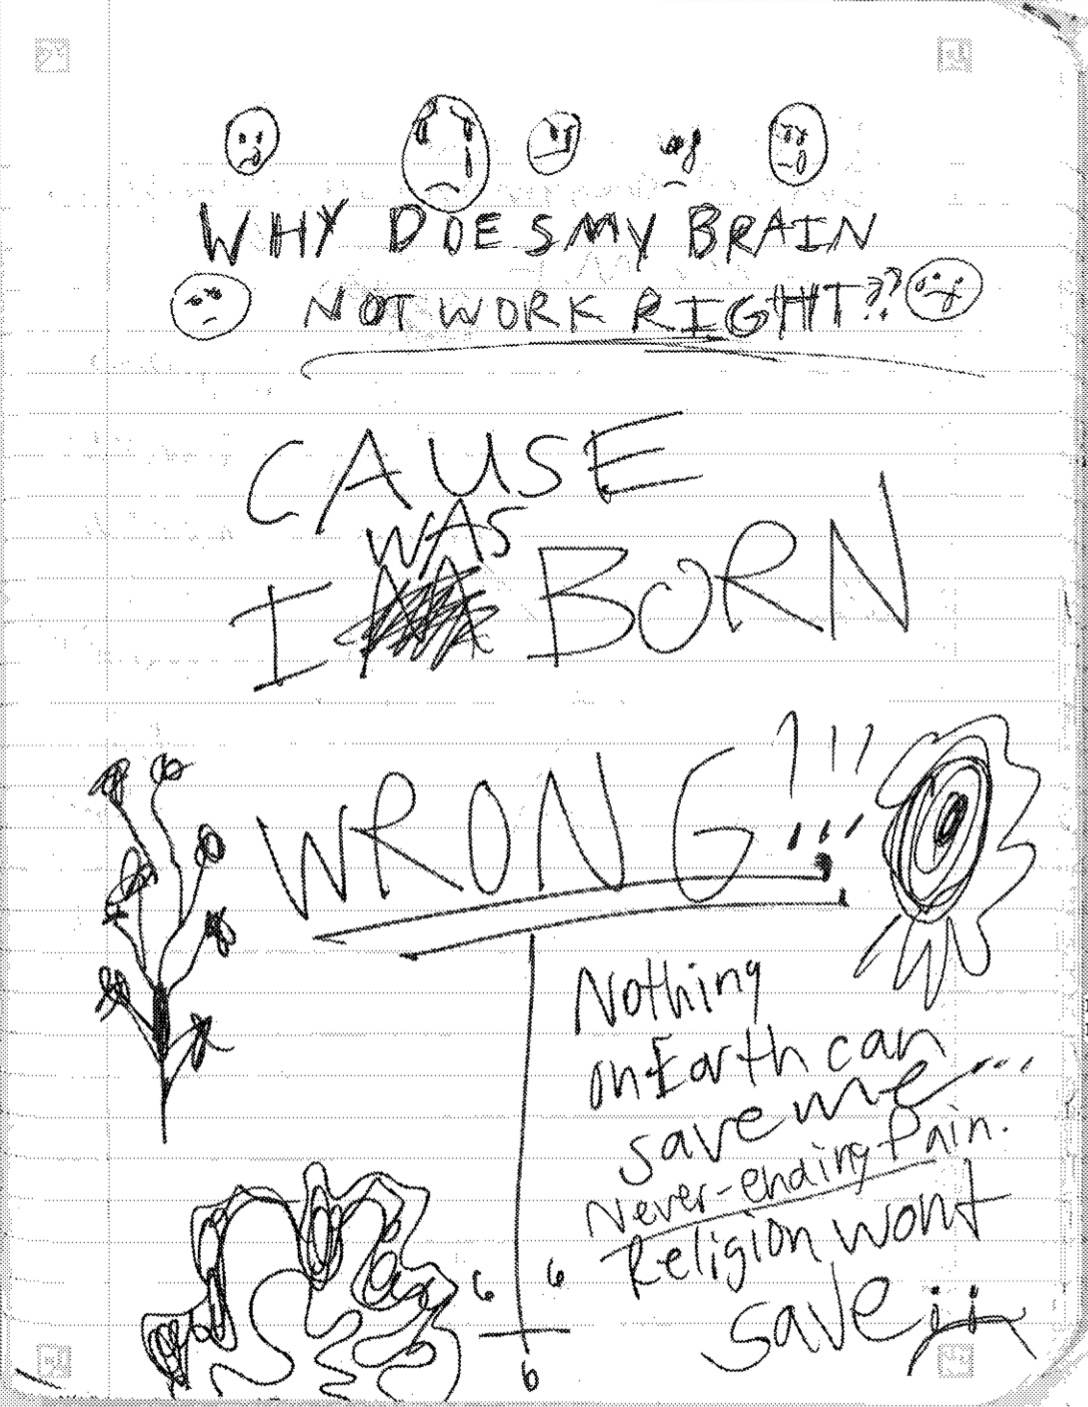 WHY DOES MY BRAIN
NOT WORK RIGHT??
CAUSE
WAS
I BORN
WRONG!!!
Nothing
on Earth can
save me...
Never-ending Pain.
Religion wont
save
6 6
6